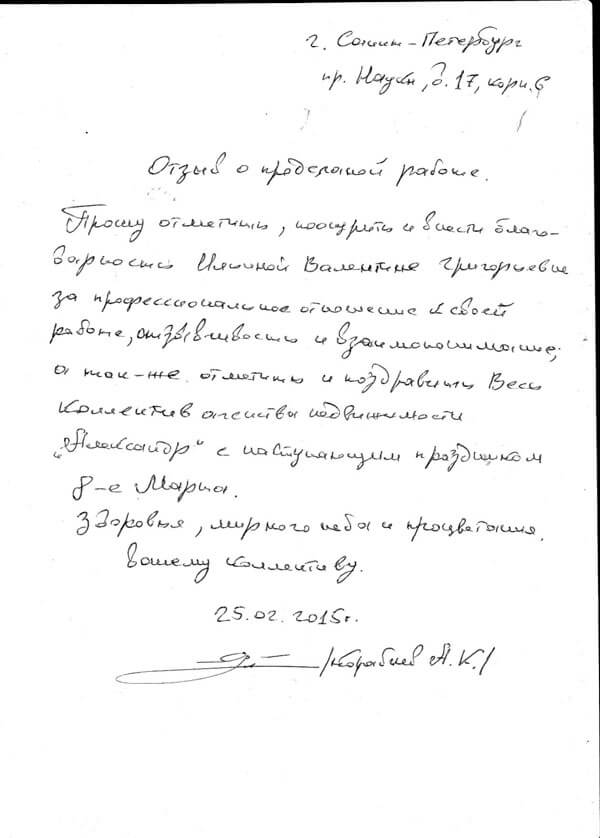 г. Санкт-Петербург
пр. Науки, д. 17, корп. 6
Отзыв о проделаной работе.
Прошу отметить, поощрить и внести благо-
дарность Валентине Григорьевне
за профессиональное отношение к своей
работе, отзывчивость и взаимопонимание,
а так-же отметить и поздравить Весь
Коллектив агенства недвижимости
„Александр" с наступающим праздником
8-е Марта.
Здоровья, мирного неба и процветания
вашему коллективу.
25.02.2015г.
А.К./